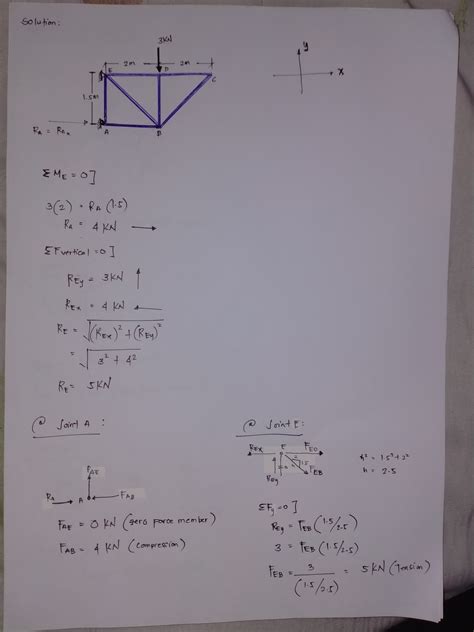 Solution:
3KN
y
2m 2m
E D C
x
1.5m
RA = REx
A B
ΣME = 0]
3(2) = RA (1.5)
RA = 4 KN →
ΣFvertical = 0]
REy = 3KN ↑
REx = 4 KN ←
RE = √(REx)² + (REy)²
= √3² + 4²
RE = 5KN
@ Joint A :
FAE
RA A FAB
FAE = 0 KN (zero force member)
FAB = 4 KN (compression)
@ Joint E :
REx E FED
REy FEB
h² = 1.5² + 2²
h = 2.5
ΣFy = 0]
REy = FEB (1.5/2.5)
3 = FEB (1.5/2.5)
FEB = 3/(1.5/2.5) = 5KN (Tension)